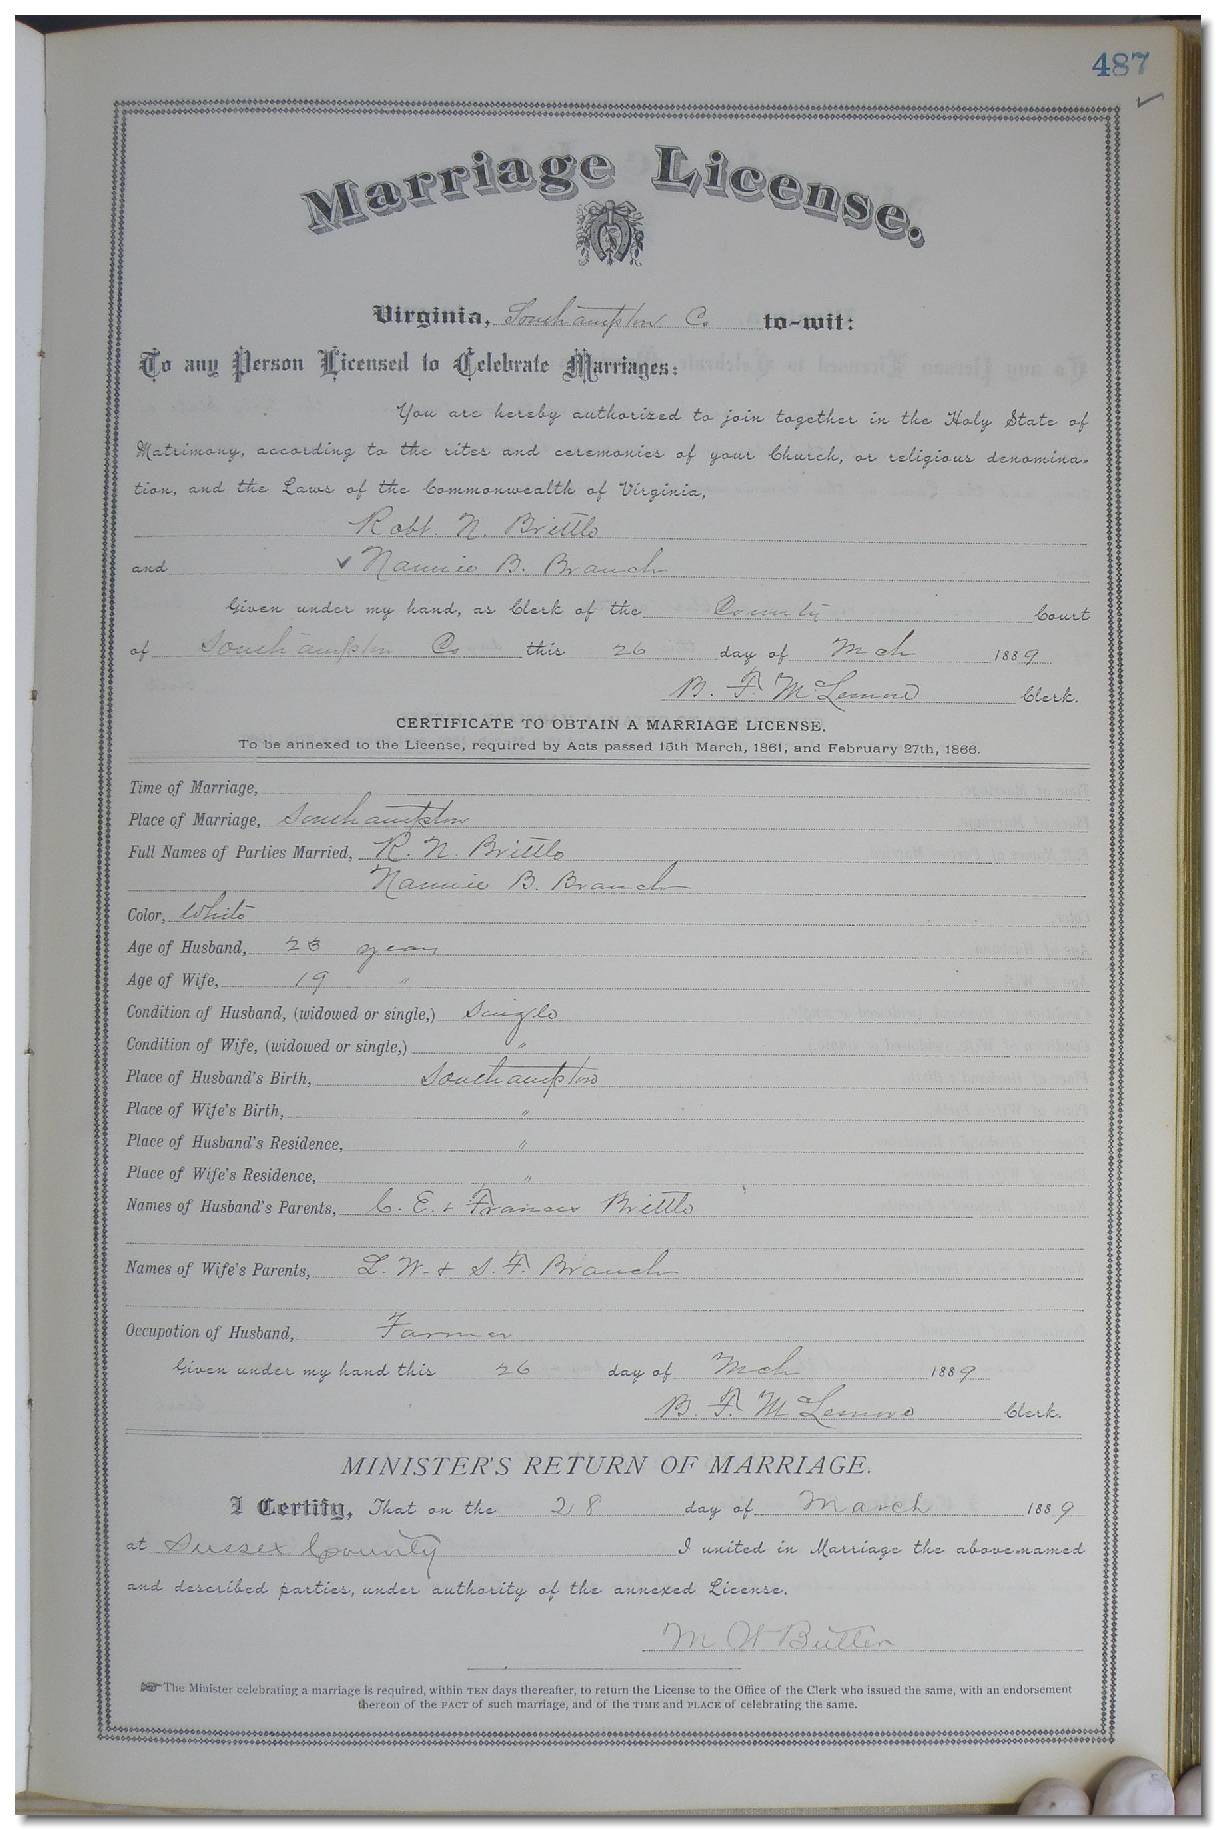 487
Marriage License.
Virginia, Southampton Co to-wit:
To any Person Licensed to Celebrate Marriages:
You are hereby authorized to join together in the Holy State of
Matrimony, according to the rites and ceremonies of your Church, or religious denomina-
tion, and the Laws of the Commonwealth of Virginia,
Robt. N. Brittle
and ✓ Nannie B. Branch
Given under my hand, as Clerk of the County Court
of Southampton Co this 26 day of Mch 1889
B. F. McLemore Clerk.
CERTIFICATE TO OBTAIN A MARRIAGE LICENSE,
To be annexed to the License, required by Acts passed 15th March, 1861, and February 27th, 1866.
Time of Marriage,
Place of Marriage, Southampton
Full Names of Parties Married, R. N. Brittle
Nannie B. Branch
Color, White
Age of Husband, 23 years
Age of Wife, 19 "
Condition of Husband, (widowed or single,) Single
Condition of Wife, (widowed or single,) "
Place of Husband's Birth, Southampton
Place of Wife's Birth, "
Place of Husband's Residence, "
Place of Wife's Residence, "
Names of Husband's Parents, C. E. & Frances Brittle
Names of Wife's Parents, L. W. & S. F. Branch
Occupation of Husband, Farmer
Given under my hand this 26 day of Mch 1889
B. F. McLemore Clerk.
MINISTER'S RETURN OF MARRIAGE.
I Certify, That on the 28 day of March 1889
at Sussex County I united in Marriage the above-named
and described parties, under authority of the annexed License.
M W Butler
☞ The Minister celebrating a marriage is required, within TEN days thereafter, to return the License to the Office of the Clerk who issued the same, with an endorsement
thereon of the FACT of such marriage, and of the TIME and PLACE of celebrating the same.